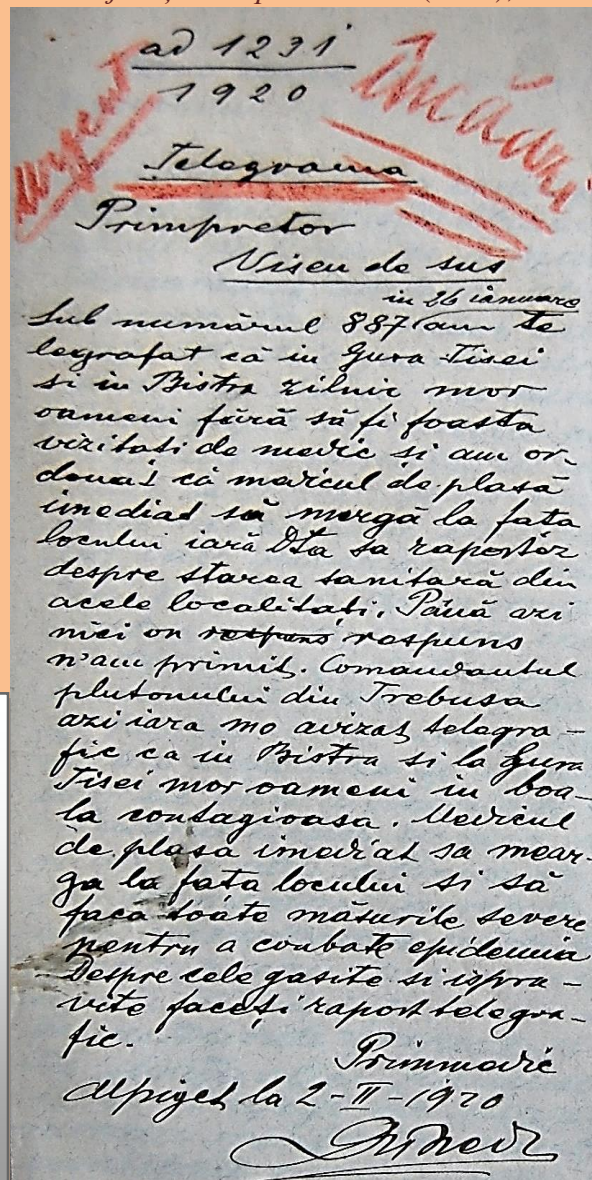 ad 1231
1920
urgent
Telegrama
Primpretor
Viseu de sus
in 26 ianuare
Sub numărul 887 am te
legrafat că in Gura Tisei
si in Bistra zilnic mor
oameni fără să fi foasta
vizitati de medic si am or-
donat că medicul de plasă
imediat să mergă la fata
locului iară Dta sa raportéz
despre starea sanitară din
acele localitati. Până azi
nici on respuns respuns
n'am primit. Comandantul
plutonului din Trebusa
azi iara mo avizat telegra-
fic ca in Bistra si la Gura
Tisei mor oameni in boa-
la contagioasa. Medicul
de plasa imediat sa mear-
ga la fata locului si să
facă toate măsurile severe
pentru a conbate epidemia
Despre cele gasite si ispra-
vite faceți raport telegra-
fic.
Primmedic
la 2-II-1920